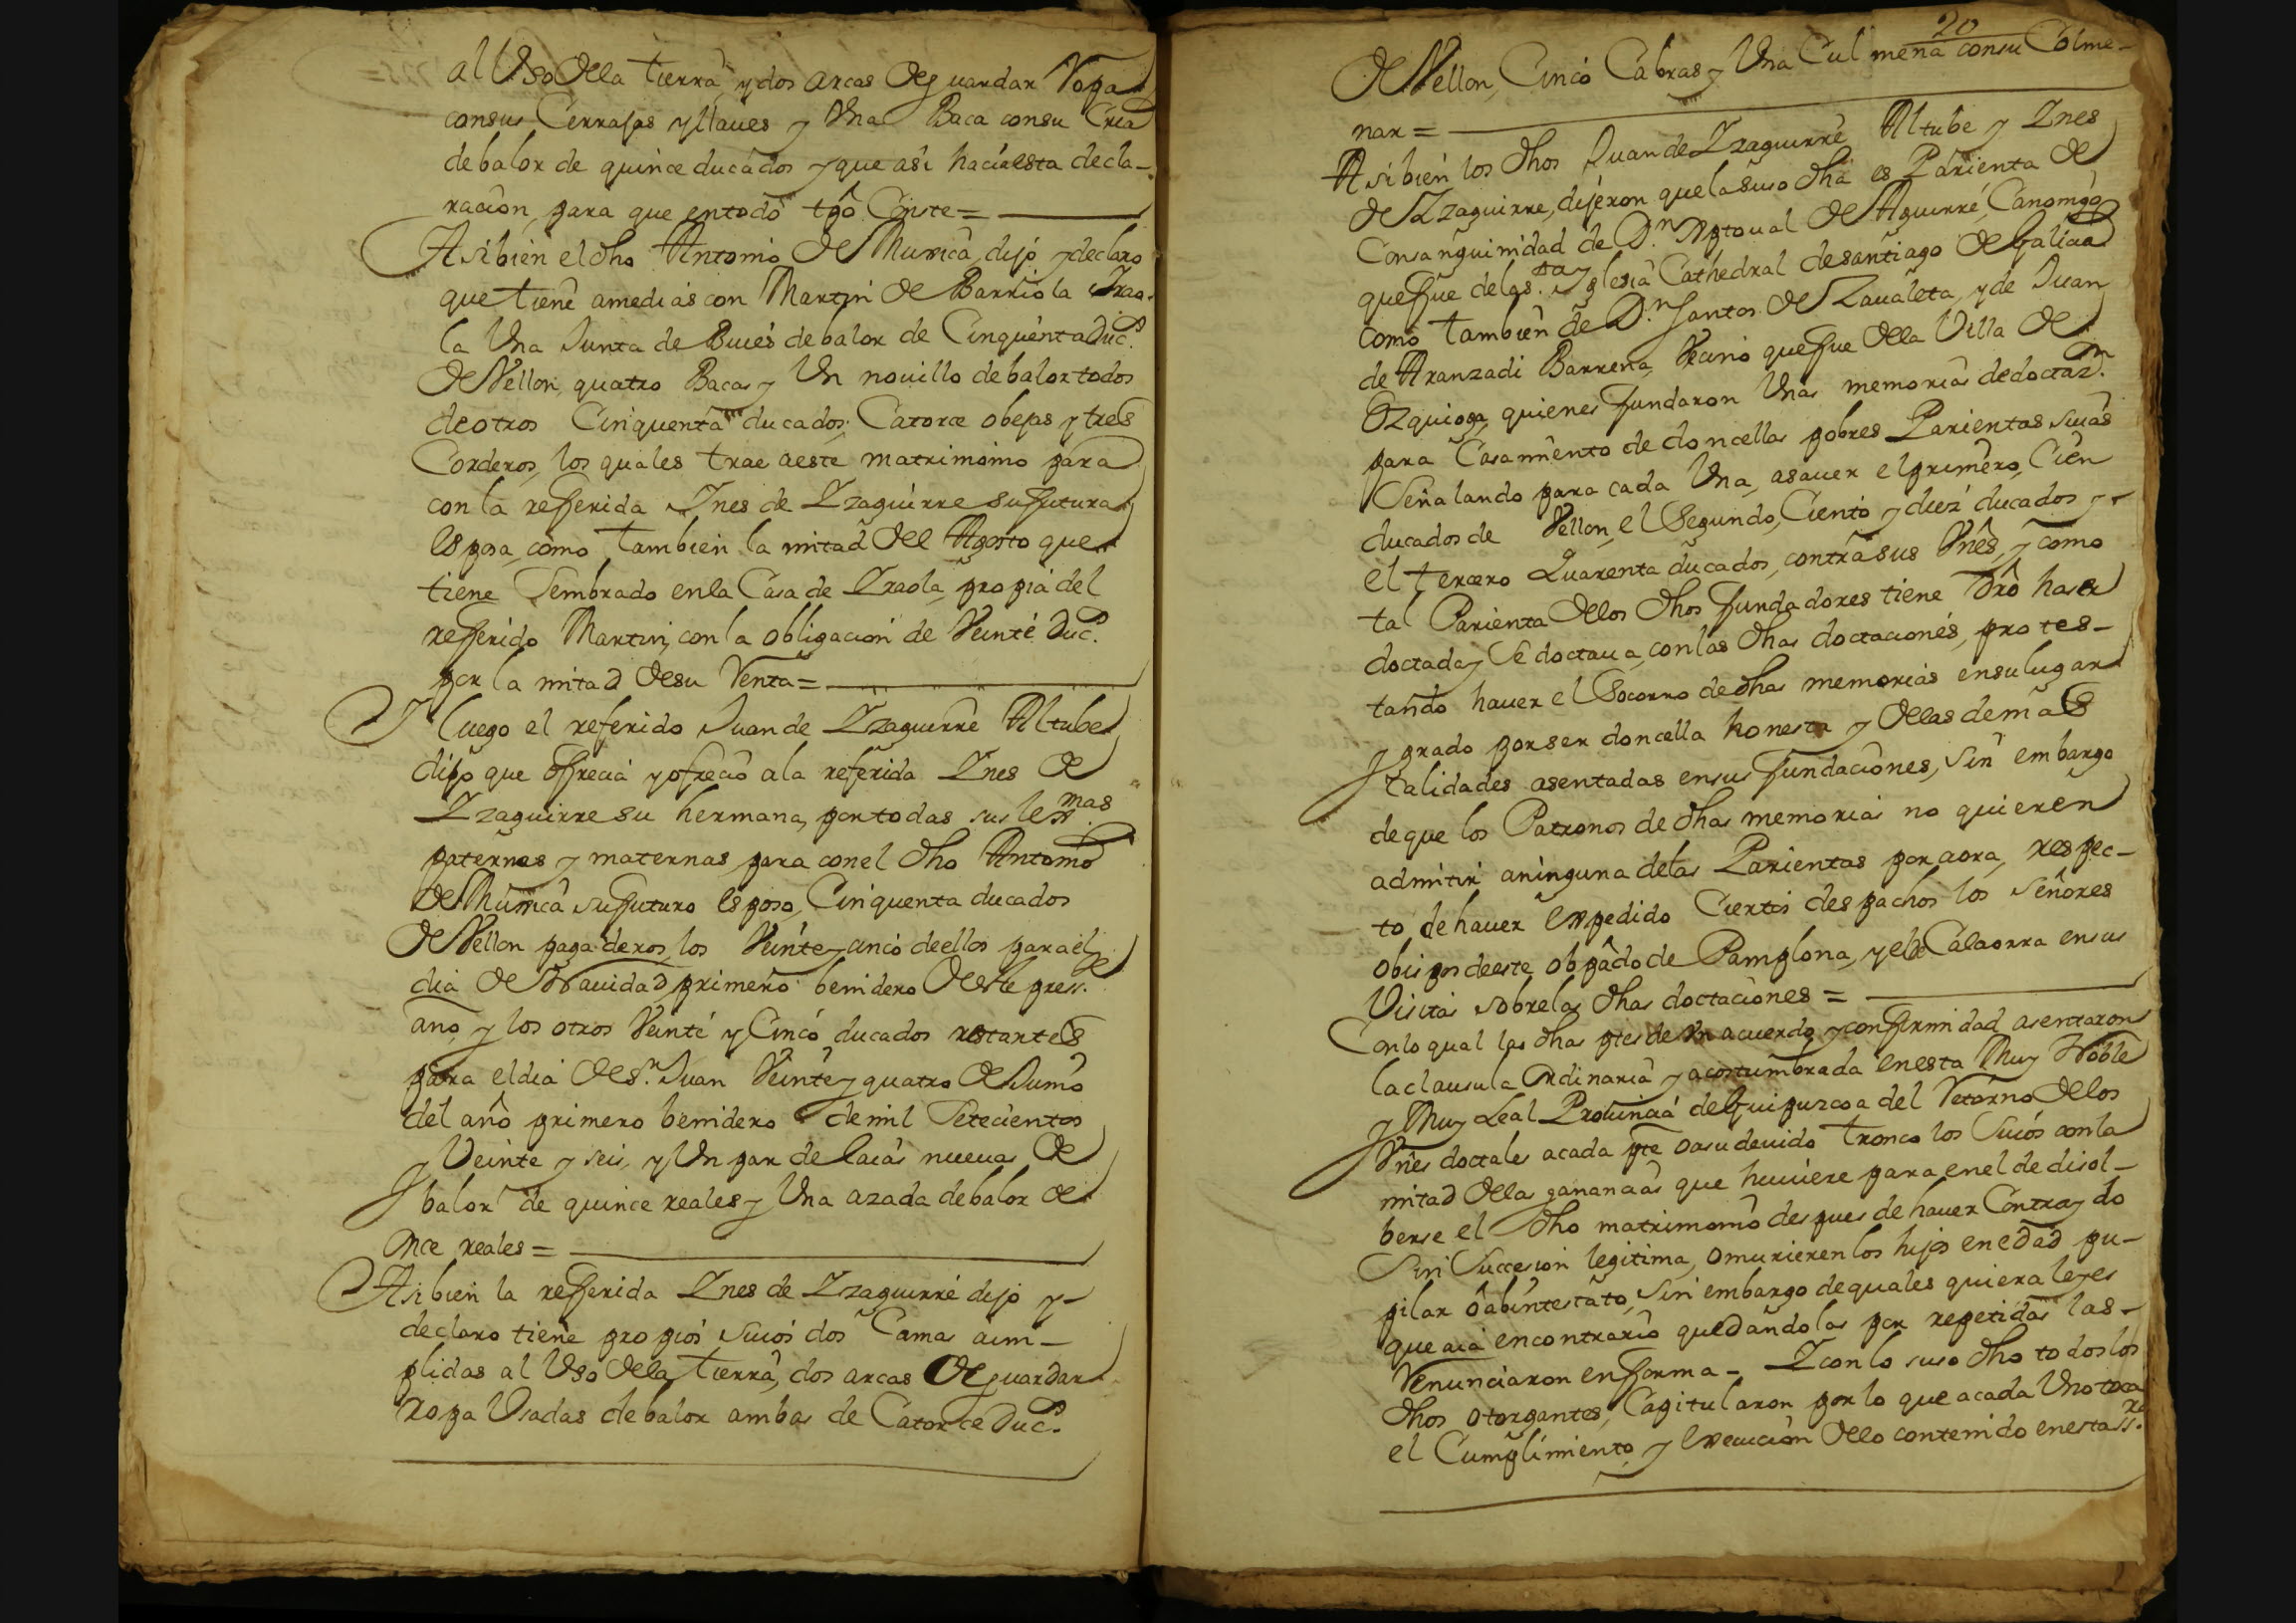 al Uso de la tierra, y dos arcas de guardar Ropa
con sus Cerrajas y llaues y Una Baca con su Cria
de balor de quince ducados y que asi hacia esta decla-
racion, para que en todo tpô Conste =
Asi bien el dho Antonio de Munica, dijo y declaro
que tiene a medias con Martin de Barriola Irao-
la Una Junta de Bues de balor de Cinquenta Ducs.
de Vellon, quatro Bacas y Un nouillo de balor todos
de otros Cinquenta ducados, Catorce obejas y tres
Corderos, los quales trae a este matrimonio para
con la refferida Ines de Yzaguirre su futura
esposa, como tambien la mitad del Agosto que
tiene Sembrado en la Casa de Iraola, propia del
refferido Martin, con la obligacion de Veinte Ducs.
por la mitad de su Renta =
Y luego el referido Juan de Yzaguirre Altube
dijo que offrecia y ofrecio a la referida Ines de
Yzaguirre su hermana, por todas sus lexmas
paternas y maternas para con el dho Antonio
de Munica su futuro esposo, Cinquenta ducados
de Vellon pagaderos, los Veinte y cinco de ellos para el
dia de Nauidad primero benidero de este press.te
año, y los otros Veinte y Cinco ducados restantes
para el dia de Sn. Juan Veinte y quatro de Junio
del año primero benidero de mil Setecientos
y Veinte y seis, y Un par de laias nueuas de
balor de quince reales y Una azada de balor de
once reales =
Asi bien la refferida Ines de Yzaguirre dijo y
declaro tiene propios suios dos Camas cum-
plidas al Uso de la tierra, dos arcas de guardar
ropa Usadas de balor ambas de Catorce Ducs.
20
de Vellon, Cinco Cabras y Una Culmena con su Colme-
nar =
Asi bien los dhos Juan de Yzaguirre Altube y Ines
de Yzaguirre, dijeron que la suso dha es Parienta de
Consanguinidad de Dn. Xptoual de Aguirre, Canonigo
que fue de la Sta. Yglesia Cathedral de santiago de Galicia
como tambien de Dn. Santos de Zaualeta, y de Juan
de Aranzadi Barrena, Vecino que fue de la Villa de
Ezquioga, quienes fundaron Unas memorias de doctazn.
para Casamiento de doncellas pobres Parientas suias
Señalando para cada Una, asauer el primero, Cien
ducados de Vellon, el Segundo, Ciento y diez ducados y
el tercero Quarenta ducados, contra sus Vnês, y como
tal Parienta de los dhos fundadores tiene Drô ha ser
doctada y Se doctaua, con las dhas doctaciones, protes-
tando hauer el Socorro de dhas memorias en su lugar
y grado por ser doncella honesta y de las demas
calidades asentadas en sus fundaciones, sin embargo
de que los Patronos de dhas memorias no quieren
admitir a ninguna de las Parientas por aora, respec-
to de hauer expedido Ciertos despachos los Señores
obispos de este obpâdo de Pamplona, y el de Calaorra en sus
Visitas sobre las dhas doctaciones =
Con lo qual las dhas ptes de Un acuerdo y conformidad asentaron
la clausula ordinaria y acostumbrada en esta Muy Noble
y Muy Leal Prouincia de Guipuzcoa del Retorno de los
Vnês doctales a cada pte o a su deuido tronco los suios con la
mitad de las ganancias que huuiere para en el de disol-
berse el dho matrimonio despues de hauer Contraydo
Sin Succesion legitima, o murieren los hijos en edad pu-
pilar o abintestato, Sin embargo de quales quiera leyes
que aia en contrario quedandolas por repetidas las
Renunciaron en forma - Y con lo suso dho todos los
dhos otorgantes, Capitularon por lo que a cada Uno toca
el Cumplimiento y execucion de lo contenido en esta ss.ra